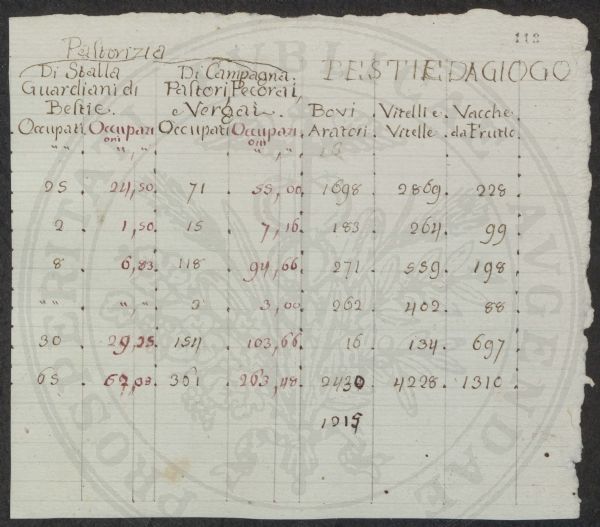 Pastorizia
Di Stalla Di Campagna: BESTIE DA GIOGO
Guardiani di Pastori, Pecorai,
Bestie. e Vergai. Bovi Vitelli e Vacche
Occupati Occupazioni Occupati Occupazioni Aratori Vitelle da Frutto
" " " , " " , " 16
25 24,50 71 55,00 1698 2869 228
2 1,50 15 7,16 183 264 99
8 6,83 118 94,66 271 559 198
" " " , " 3 3,00 262 402 88
30 29,25 154 103,66 16 134 697
65 62,08 361 263,48 2430 4228 1310
1915
PROSPERITATI PUBLICAE AVGENDAE